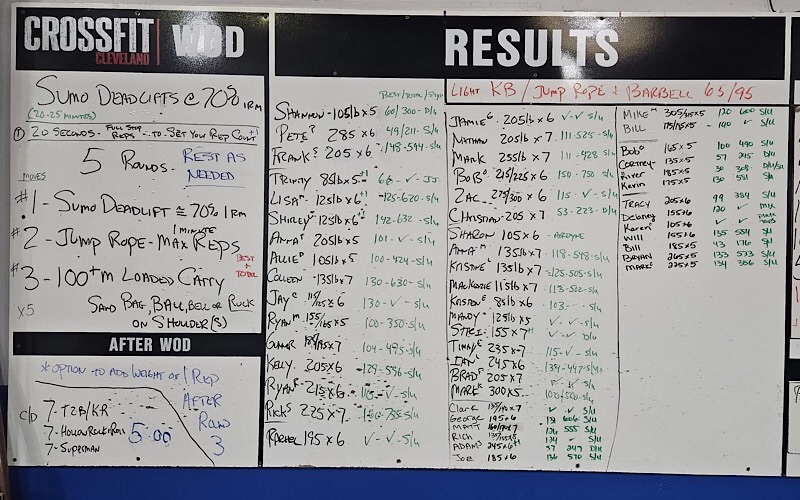 CROSSFIT
CLEVELAND
WOD
SUMO DEADLIFTS @ 70% 1RM
(20-25 MINUTES)
① 20 SECONDS - FULL STOP REPS - TO SET YOUR REP COUNT
5 ROUNDS- REST AS NEEDED
MOVES
#1 - SUMO DEADLIFT @ 70% 1RM
1 MINUTE
#2 - JUMP ROPE - MAX REPS
BEST + TOTAL
#3 - 100+m LOADED CARRY
x5 SAND BAG, BALL, BELL OR RUCK
ON SHOULDER(S)
AFTER WOD
*OPTION TO ADD WEIGHT OR 1 REP
AFTER
ROUND
3
C/D
7- T2B/KR
7- HOLLOW ROCK
7- SUPERMAN
5:00
RESULTS
BEST/TOTAL
SHANNON - 105lb x5 60/300-D/u
PETE 285 x6 49/211-S/u
FRANK 205 x6 148-594-S/u
TRINITY 85lb x5
LISA 125lb x6 125-620-S/u
SHIRLEY 125lb x6 142-632-S/u
ANNA 205lb x5 101-✓-S/u
ALLIE 105lb x5 100-424-S/u
COLLEEN 135lb x7 130-630-S/u
JAY x6 130-✓-S/u
RYAN 155/165 x5 100-350-S/u
GUNNAR x7
KELLY 205x6 129-596-S/u
RYAN 215x6
RICK 225 x7
RACHEL 195 x6 ✓-✓-S/u
LIGHT KB / JUMP ROPE + BARBELL 65/95
JAMIE 205lb x6 ✓-✓-S/u
NATHAN 205lb x7 111-525-S/u
MARK 255lb x7 111-428 S/u
BOB 215/225 x6 150-750 S/u
ZAC 275/300 x6 115-✓-S/u
CHRISTIAN 205 x7 53-223-D/u
SHARON 105 x6 - AIRDYNE
ANNA 135lb x7 118-548-S/u
KRISTINE 135lb x7 125-505-S/u
MACKENZIE 115lb x7 113-502-S/u
KRISTEN 85lb x6 103-
MANDY 125lb x5 ✓-✓-S/u
155 x7 ✓-✓ D/u
235 x7 115-✓-S/u
IAN 245x6
BRAD 205 x7
MARK 300x5
Clark x7 ✓ ✓ S/u
GEORGE 195x6 131 606 S/u
MATT x7 136 555 S/u
RICH x5 124 ✓ S/u
ADAM 245x6 57 247 D/u
JOE 185x6 136 570 S/u
MIKE x5 120 600 S/u
BILL x5 140 ✓ S/u
BOB 165 x5 100 490 S/u
COURTNEY 135x5 57 245 D/u
RIVER 185x5 30
Kevin 175x5 130 551 S/u
TRACY 205x6 99 384 S/u
Delaney 155x6 120 ✓
Karen 105x6 ✓ ✓
WILL 155x6 135 554 S/u
BILL 185x5 43 176 S/u
BRYAN 265x5 133 533 S/u
MARK 225x5 134 386 S/u